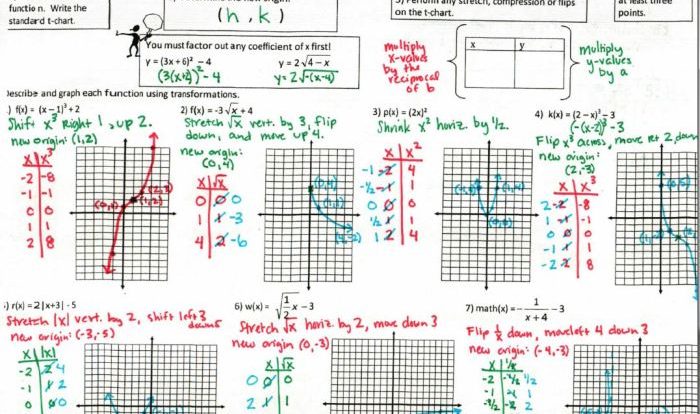 function. Write the
standard t-chart.
(h, k)
on the t-chart.
points.
You must factor out any coefficient of x first!
y = (3x + 6)² − 4
y = 2√4 − x
(3(x+2))² - 4
y = 2√-(x-4)
multiply
x-values
by the
reciprocal
of b
x y
multiply
y-values
by a
Describe and graph each function using transformations.
.) f(x) = (x − 1)³ + 2
Shift x³ Right 1, up 2.
new origin: (1,2)
x x³
-2 -8
-1 -1
0 0
1 1
2 8
2) f(x) = -3√x + 4
Stretch √x vert. by 3, flip
down, and move up 4.
new origin:
(0,4)
x √x
0 0 0
1 1 -3
4 2 -6
3) p(x) = (2x)²
Shrink x² horiz. by 1/2.
x x²
-1 -2 4
-1/2 -1 1
0 0 0
1/2 1 1
1 2 4
4) k(x) = (2 − x)³ − 3
(-(x-2))³ - 3
Flip x³ across, move Rt 2, down
new origin:
(2,-3)
x x³
2 -2 -8
1 -1 -1
0 0 0
-1 1 1
-2 2 8
:) r(x) = 2|x+3| - 5
Stretch |x| vert. by 2, shift left 3
down 5
new origin: (-3,-5)
x |x|
-2 2 4
-1 1 2
0 0 0
6) w(x) = √1/2 x − 3
Stretch √x horiz. by 2, move down 3
new origin (0,-3)
x √x
0 0 0
2 1 1
7) math(x) = − 1/x + 4 − 3
Flip 1/x down, move left 4 down 3
new origin: (-4,-3)
x 1/x
-2 -1/2 1/2
-1 -1 1
-1/2 -2 2